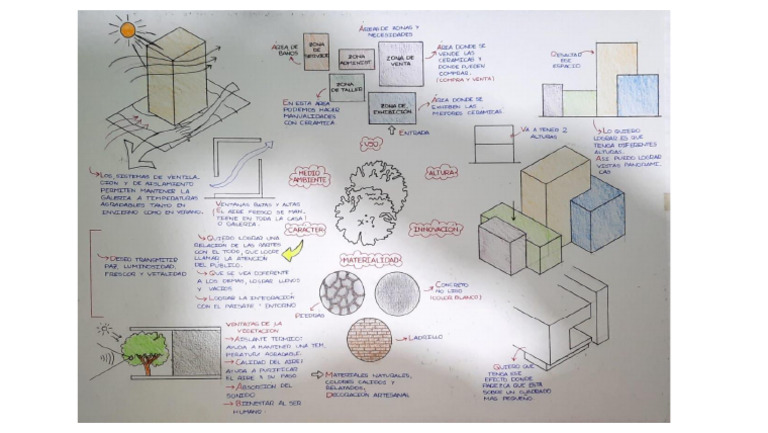 ÁREAS DE ZONAS Y
NECESIDADES
ÁREA DE
BAÑOS
ZONA
DE
SERVICIO
ZONA
ADMINIST
ZONA
DE
VENTA
ZONA
DE TALLER
ZONA
DE EXHIBICIÓN
ÁREA DONDE SE
VENDE LAS
CERÁMICAS Y
DONDE PUEDEN
COMPRAR.
(COMPRA Y VENTA)
EN ESTA ÁREA
PODEMOS HACER
MANUALIDADES
CON CERÁMICA
ÁREA DONDE SE
EXHIBEN LAS
MEJORES CERÁMICAS
ENTRADA
ESE
ESPACIO
VA A TENER 2
ALTURAS
LO QUIERO
LOGRAR ES QUE
TENGA DIFERENTES
ALTURAS.
ASÍ PUEDO LOGRAR
VISTAS PANORÁMI
CAS
USO
MEDIO
AMBIENTE
ALTURA
CARÁCTER
INNOVACIÓN
MATERIALIDAD
LOS SISTEMAS DE VENTILA
CIÓN Y DE AISLAMIENTO
PERMITEN MANTENER LA
GALERÍA A TEMPERATURAS
AGRADABLES TANTO EN
INVIERNO COMO EN VERANO.
VENTANAS BAJAS Y ALTAS
EL AIRE FRESCO SE MAN
TIENE EN TODA LA CASA
O GALERÍA.
QUIERO LOGRAR UNA
RELACIÓN DE LAS PARTES
CON EL TODO, QUE LOGRE
LLAMAR LA ATENCIÓN
DEL PÚBLICO.
QUE SE VEA DIFERENTE
A LOS DEMÁS, LOGRAR LLENOS
Y VACÍOS
LOGRAR LA INTEGRACIÓN
CON EL PAISAJE ENTORNO
DESEO TRANSMITIR
PAZ, LUMINOSIDAD,
FRESCOR Y VITALIDAD
PIEDRAS
CONCRETO
NO LISO
(COLOR BLANCO)
LADRILLO
VENTAJAS DE LA
VEGETACIÓN
AISLANTE TÉRMICO:
AYUDA A MANTENER UNA TEM
PERATURA AGRADABLE.
CALIDAD DEL AIRE:
AYUDA A PURIFICAR
EL AIRE A SU PASO
ABSORCIÓN DEL
SONIDO
BIENESTAR AL SER
HUMANO.
MATERIALES NATURALES,
COLORES CÁLIDOS Y
RELAJADOS,
DECORACIÓN ARTESANAL
QUIERO QUE
TENGA ESE
EFECTO DONDE
PAREZCA QUE ESTÁ
SOBRE UN CUADRADO
MÁS PEQUEÑO